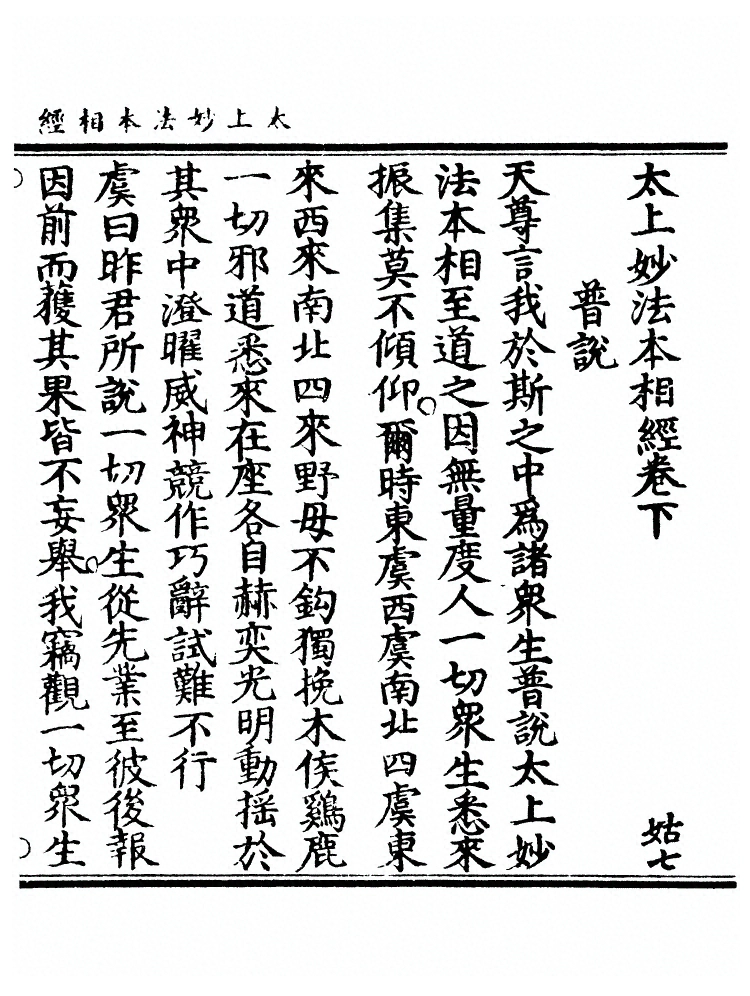 太上妙法本相經
太上妙法本相經卷下
姑七
普説
天尊言我於斯之中爲諸衆生普説太上妙
法本相至道之因無量度人一切衆生悉來
振集莫不傾仰爾時東虞西虞南北四虞東
來西來南北四來野毋不鈎獨挽木侯鷄鹿
一切邪道悉來在座各自赫奕光明動揺於
其衆中澄曜威神競作巧辭試難不行
虞曰昨君所説一切衆生從先業至彼後報
因前而獲其果皆不妄舉我竊觀一切衆生